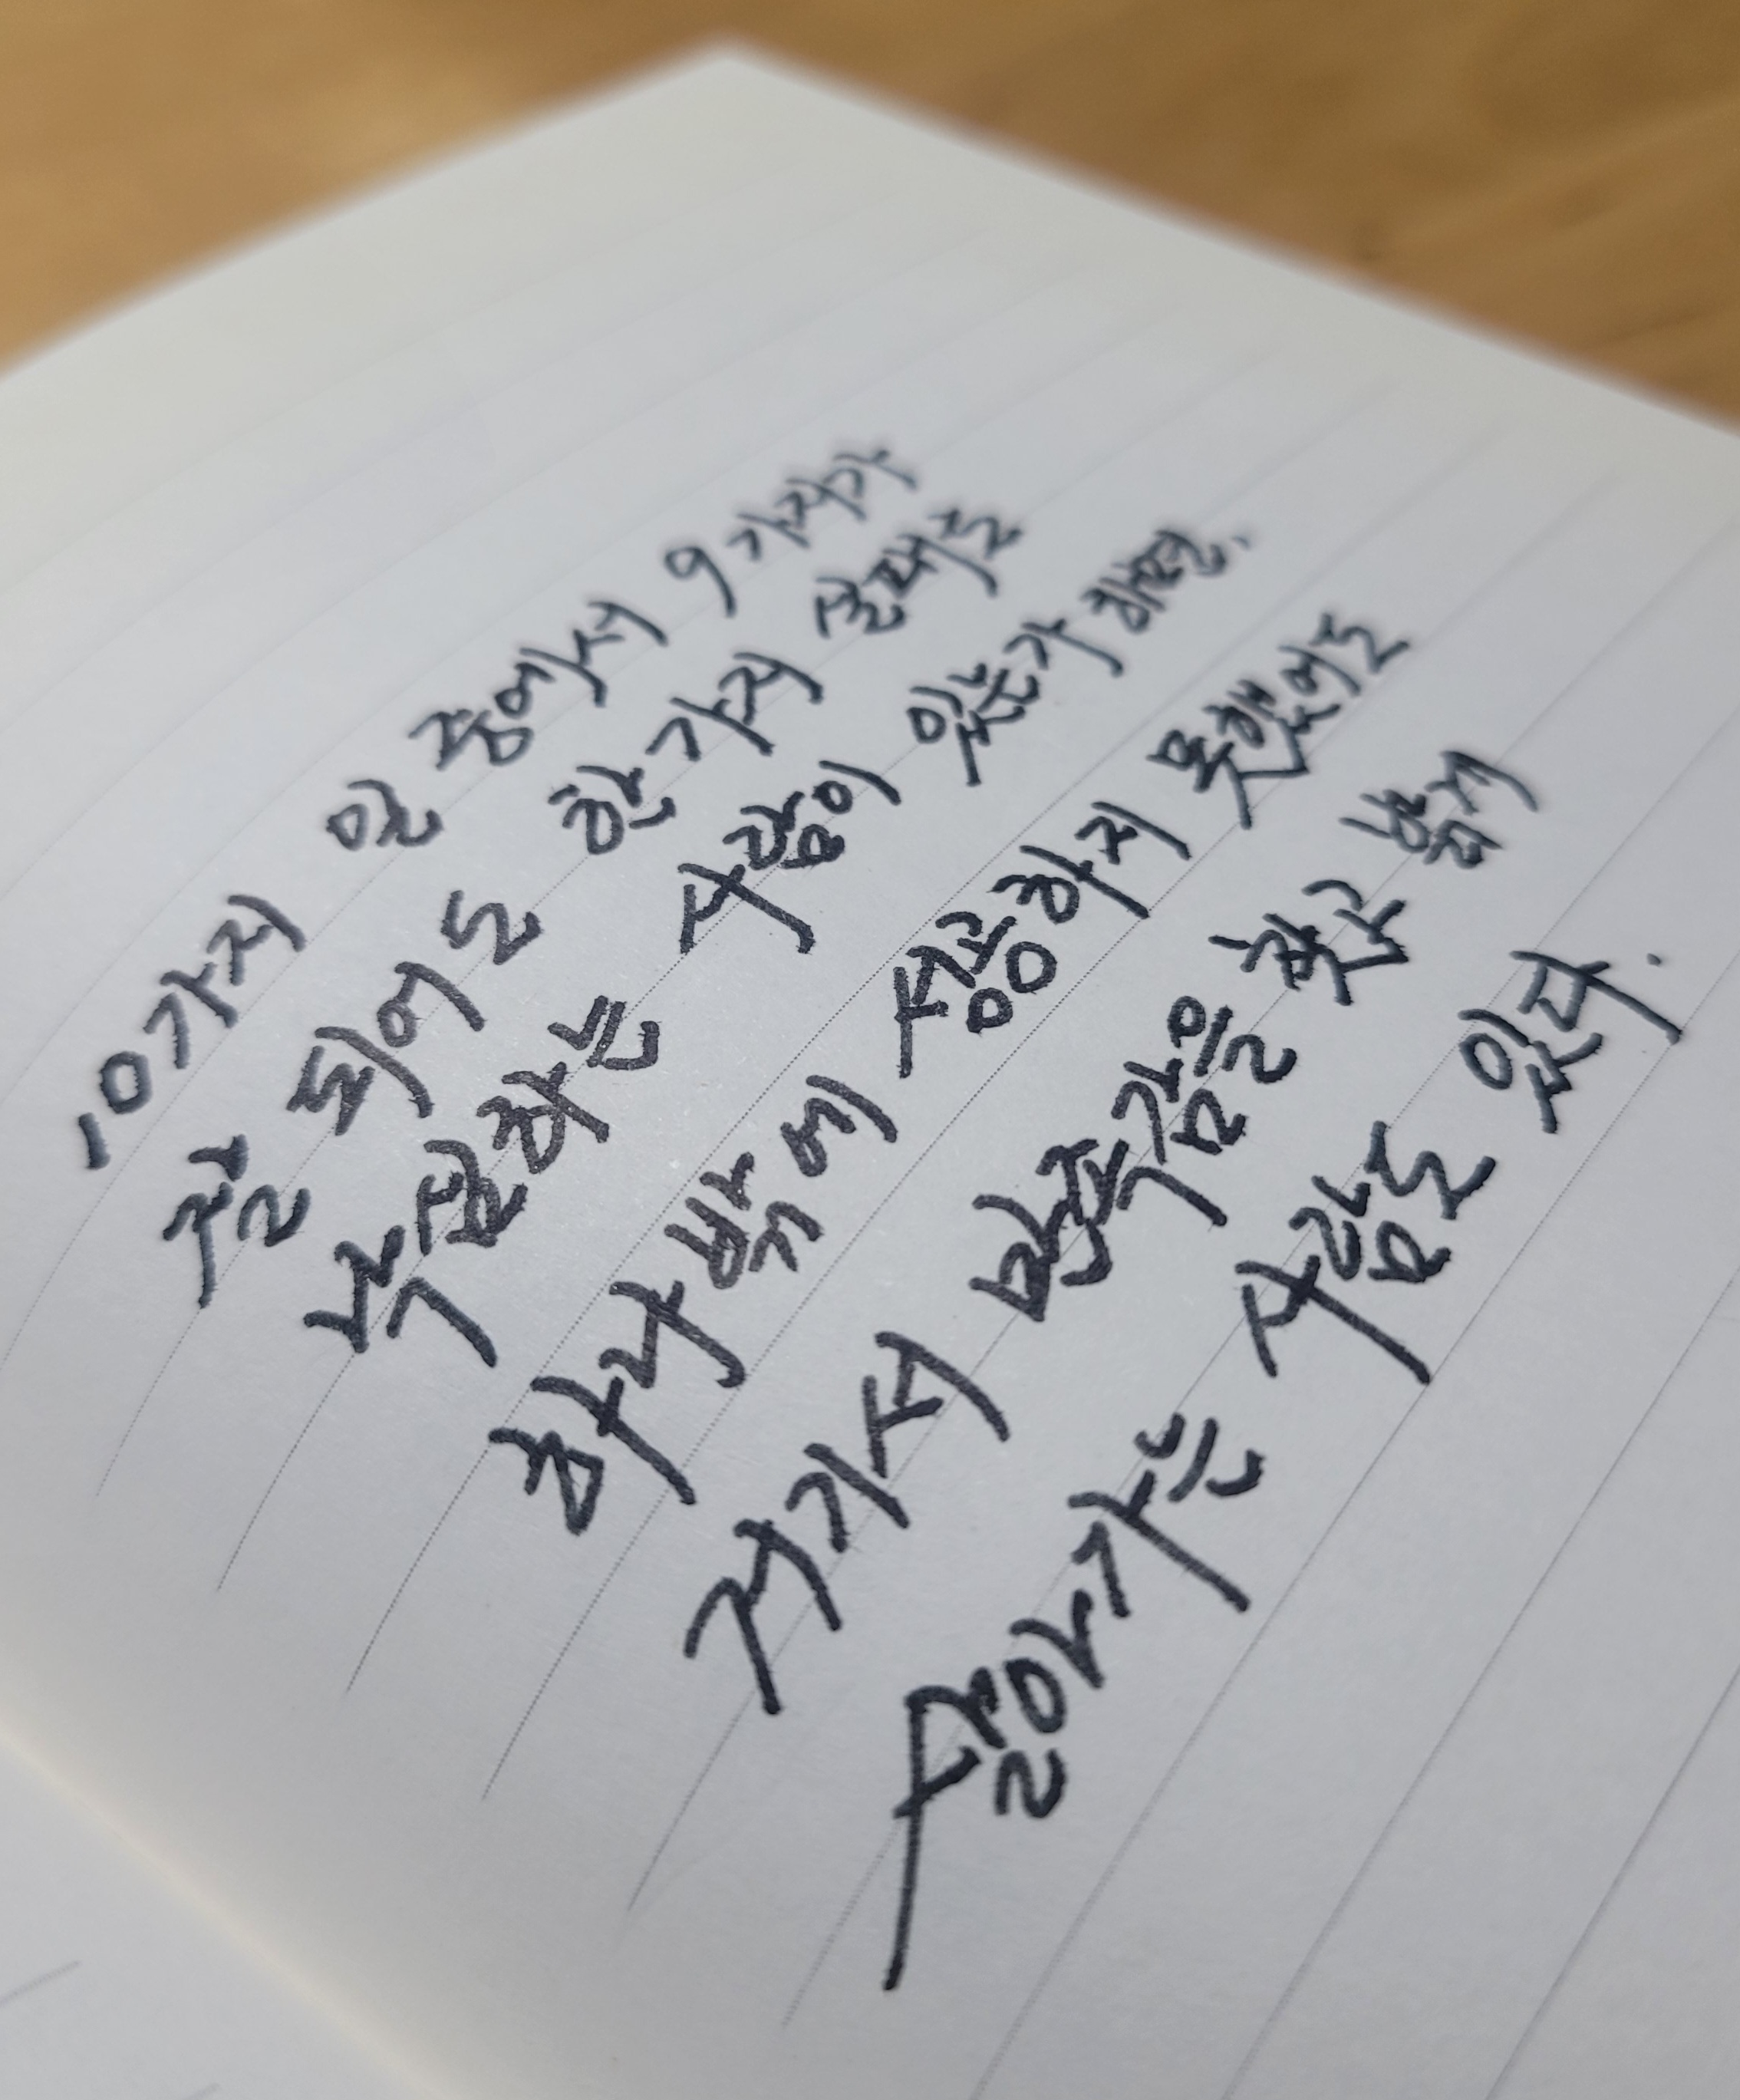 10가지 일 중에서 9가지가
잘 되어도 한가지 실패로
낙심하는 사람이 있는가 하면,
하나밖에 성공하지 못했어도
거기서 만족감을 찾고 밝게
살아가는 사람도 있다.